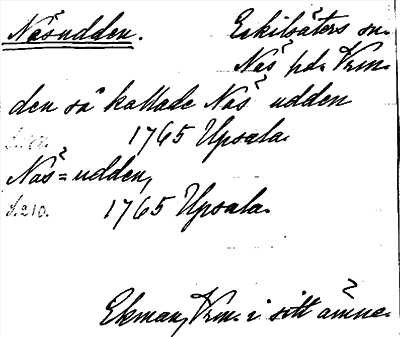 Näsudden.
Eskilsäters sn.
Näs hd. Vrm.
den så kallade Näs udden
1765 Upsala.
Näs=udden,
S. 210.
1765 Upsala.
Ekman, Vrm. i sitt ämne.